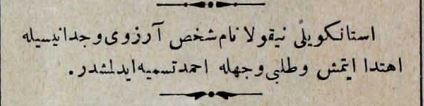 استانكویلی نیقولا نام شخص آرزوی وجدانیسیله
اهتدا ایتمش وطلبی وجهله احمد تسمیه ایدلمشدر.